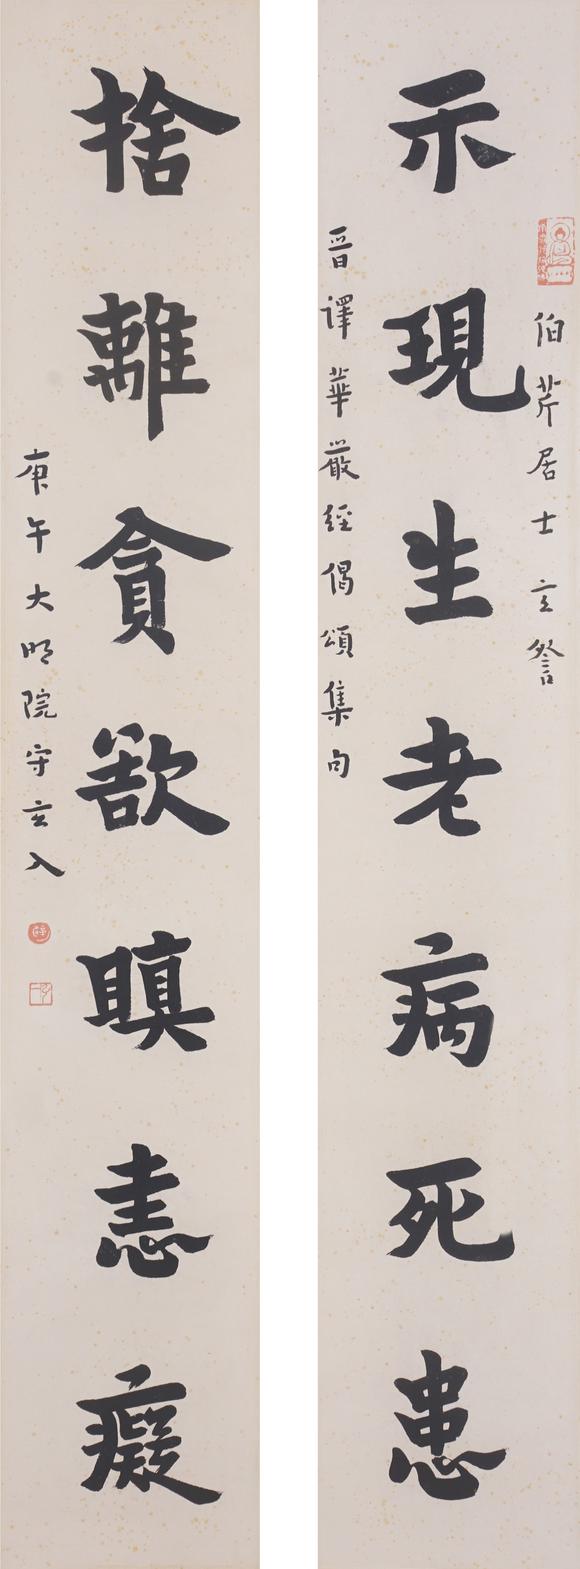 伯芹居士 玄詧
示現生老病死患
晋譯華嚴經偈頌集句
捨離貪欲瞋恚癡
庚午大明院守玄入